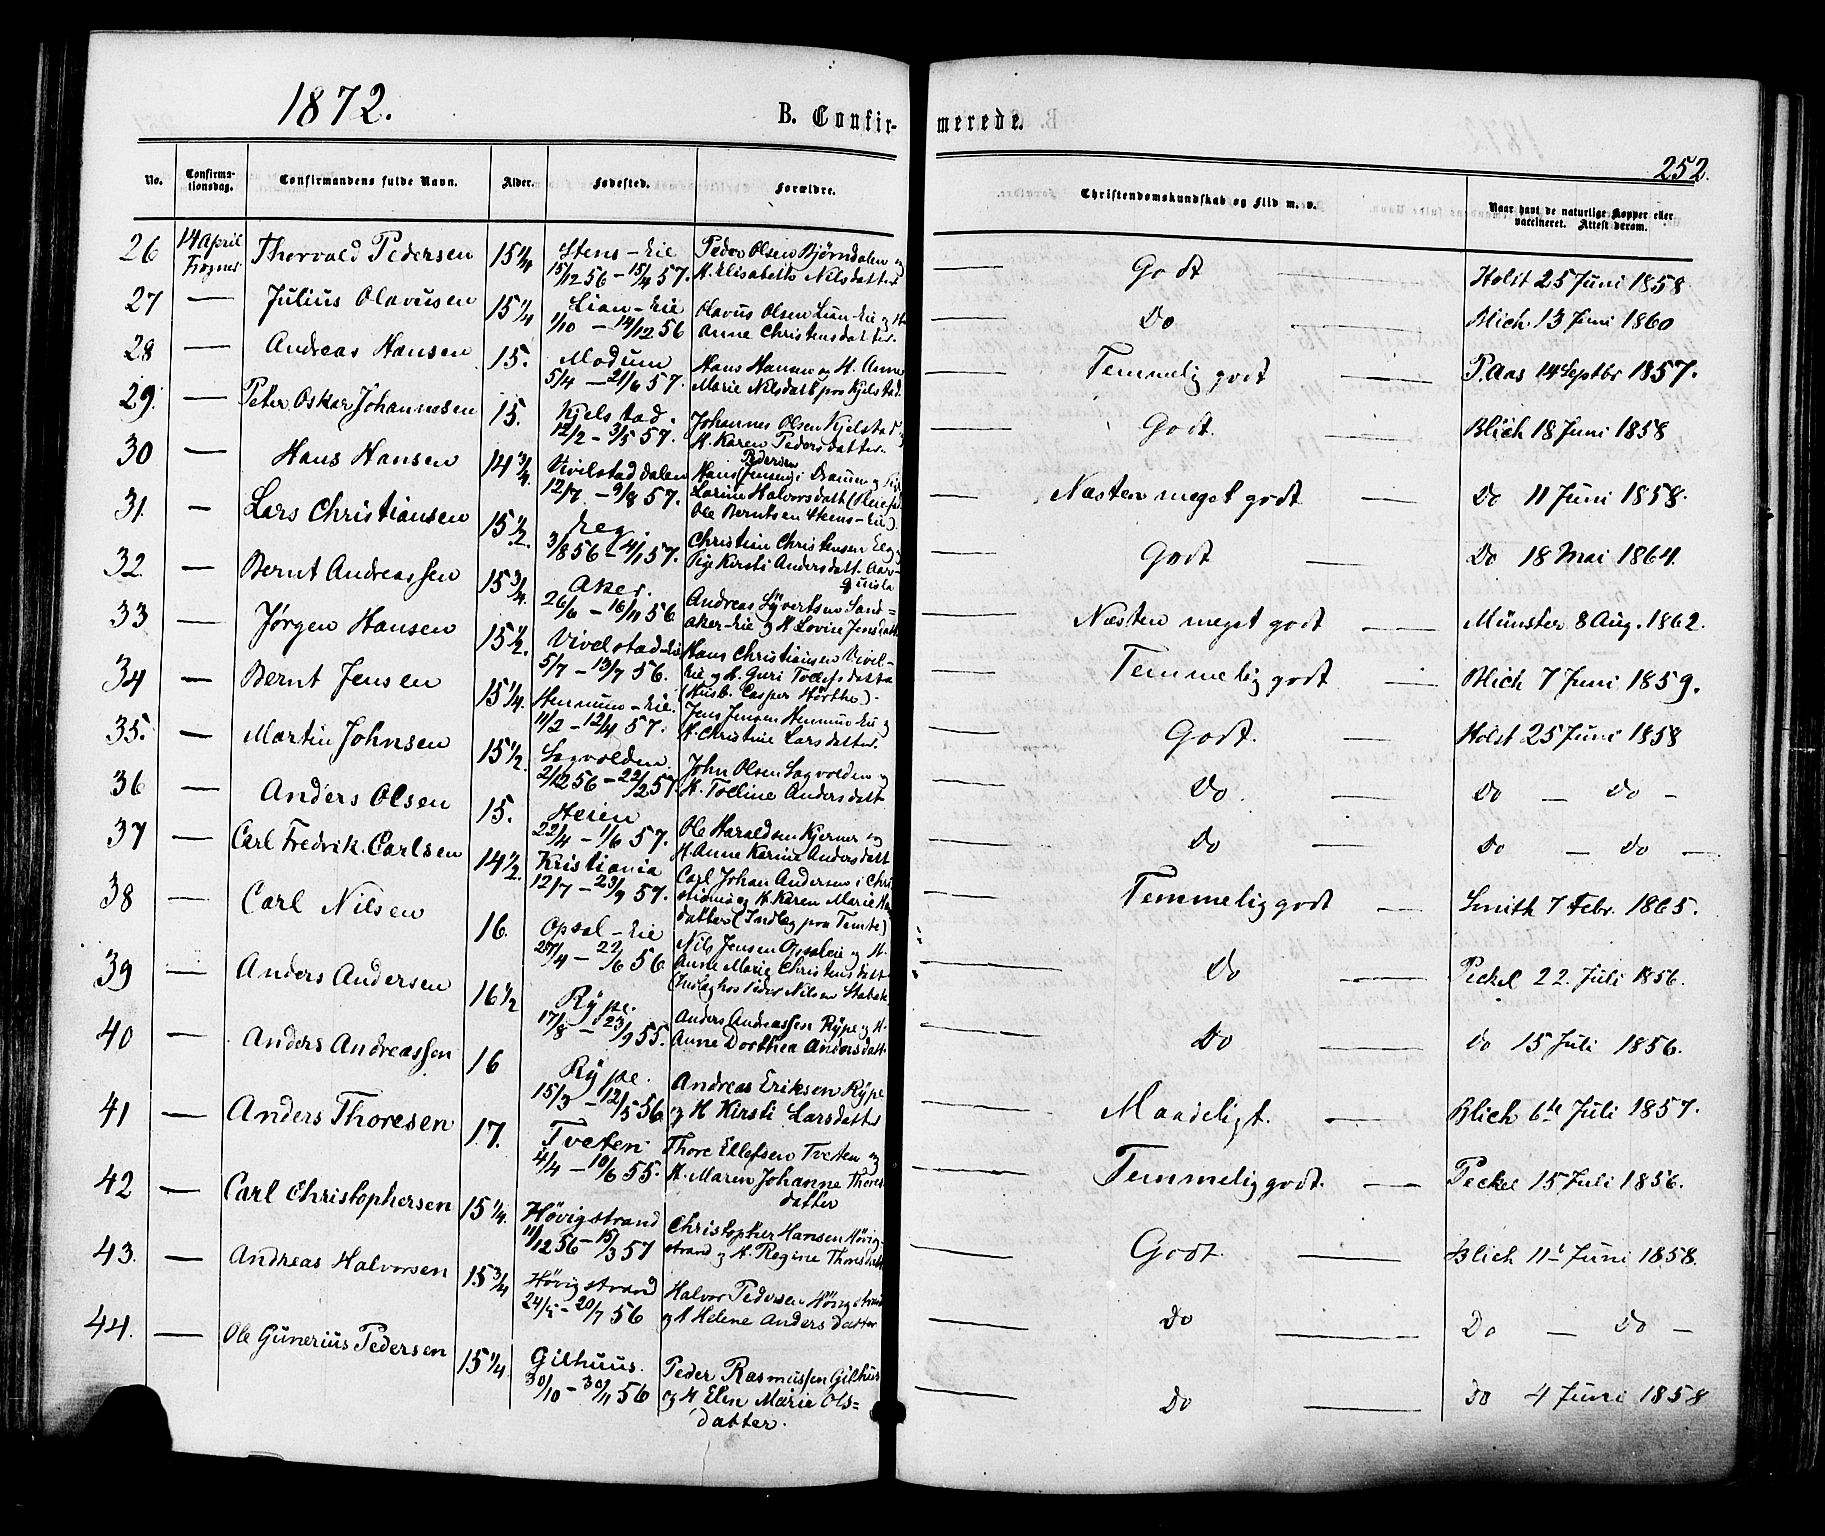 1872.
B. Confir-
merede.
252.
No. Confirma-tionsdag. Confirmandens fulde Navn. Alder. Fødested. Forældre. Christendomskundskab og Flid m. v. Naar havt de naturlige Kopper eller vaccineret. Attest derom.
26 14 April Frogner Thorvald Pedersen 15 1/4 Stens-Eie Peder Olsen Bjørndalen og — Godt — Holst 25 Juni 1858
15/12 56 – 15/4 57. H. Elisabeth Nilsdatter
27 — Julius Olavusen 15 1/4 Lian-Eie Olavus Olsen Lian-Eie og H. — Do — Blich 13 Juni 1860
1/10 – 14/12 56 Anne Christensdatter.
28 — Andreas Hansen 15. Modum Hans Hansen og H. Anne — Temmelig godt — P. Aas 14 Septbr 1857.
5/4 – 21/6 57. Marie Nilsdatt pr Kjelstad.
29. — Peter Oskar Johannesen 15. Kjelstad. Johannes Olsen Kjelstad og — Godt. — Blich 18 Juni 1858
12/2 – 3/5 57. H. Karen Pedersdatter.
30 — Hans Hansen 14 3/4. Vivelstaddalen Hans Pedersen — Næsten meget godt — Do 11 Juni 1858.
12/7 – 9/8 57. Larine Halvorsdatt
Ole Berntsen Stens-Eie).
31. — Lars Christiansen 15 1/2. Eeg. Christian Christensen Eeg og — Godt — Do 18 Mai 1864.
3/8 56 – 4/1 57. Pige Kirsti Andersdatt.
32. — Bernt Andreassen 15 3/4. Aker. Andreas Syvertsen Sand= — Næsten meget godt — Münster 8 Aug. 1862.
26/6 – 16/11 56 aker-Eie og H. Lovise Jensdatt
33 — Jørgen Hansen 15 1/2. Vivelstad-Ei Hans Christiansen Vivel- — Temmelig godt — Blich 7 Juni 1859.
5/7 – 13/7 56. Eie og H. Guri Tollefsdatte
(Husb. Casper Hørthe).
34 — Bernt Jensen 15 1/4. Hennum-Eie. Jens Jensen Hennum-Ei og — Godt. — Holst 25 Juni 1858
11/2 – 12/4 57. H. Christine Larsdatter.
35. — Martin Johnsen 15 1/2. Sagvolden. John Olsen Sagvolden og — Do. — Do — Do –
2/12 56 – 22/2 57. H. Tolline Andersdatt
36 — Anders Olsen 15. Heien Ole Haraldsen Kjerner og — Do — Do — Do —
22/4 – 1/6 57. H. Anne Karine Andersdatt
37 — Carl Fredrik Carlsen 14 1/2. Kristiania Carl Johan Andersen i Chri — Temmelig godt — Smith 7 Febr. 1865.
12/7 – 23/9 57. stiania og H. Karen Marie
datter (Indlag paa Temte)
38 — Carl Nilsen 16. Opsal-Eie Nils Jensen Opsaleie og H. — Do — Peckel 22. Juli 1856.
27/4 – 22/6 56 Anne Marie Christensdatt
(Indlag hos Peder Nilsen Stabæk
39 — Anders Andersen 16 1/2 Rÿpe. Anders Andreassen Rÿpe og H. — Do — Do 15 Juli 1856.
17/8 – 23/9 55. Anne Dorthea Andersdatt
40 — Anders Andreassen 16 Rÿpe. Andreas Eriksen Rÿpe — Maadeligt. — Blich 6te Juli 1857.
15/3 – 12/5 56 og H Kirsti Larsdatter
41 — Anders Thoresen 17. Tveten. Thore Ellefsen Tveten og — Temmelig godt. — Peckel 15 Juli 1856.
4/4 – 10/6 55. H. Maren Johanne Thores
datter
42 — Carl Christophersen 15 1/4. Høvigstrand Christopher Hansen Høvig- — Godt — Blich 11te Juni 1858.
11/12 56 – 15/3 57 strand og H. Regine Thoresdatt
43. — Andreas Halvorsen 15 3/4 Høvigstrand Halvor Pedersen Høvigstrand — Do — Do — Do –
24/5 – 20/7 56 og H Helene Andersdatter
44. — Ole Gunerius Pedersen 15 1/4 Gilhuus. Peder Rasmussen Gilhus — Do — Do 4 Juni 1858
30/10 – 30/11 56 og H Elen Marie Ols=
datter.